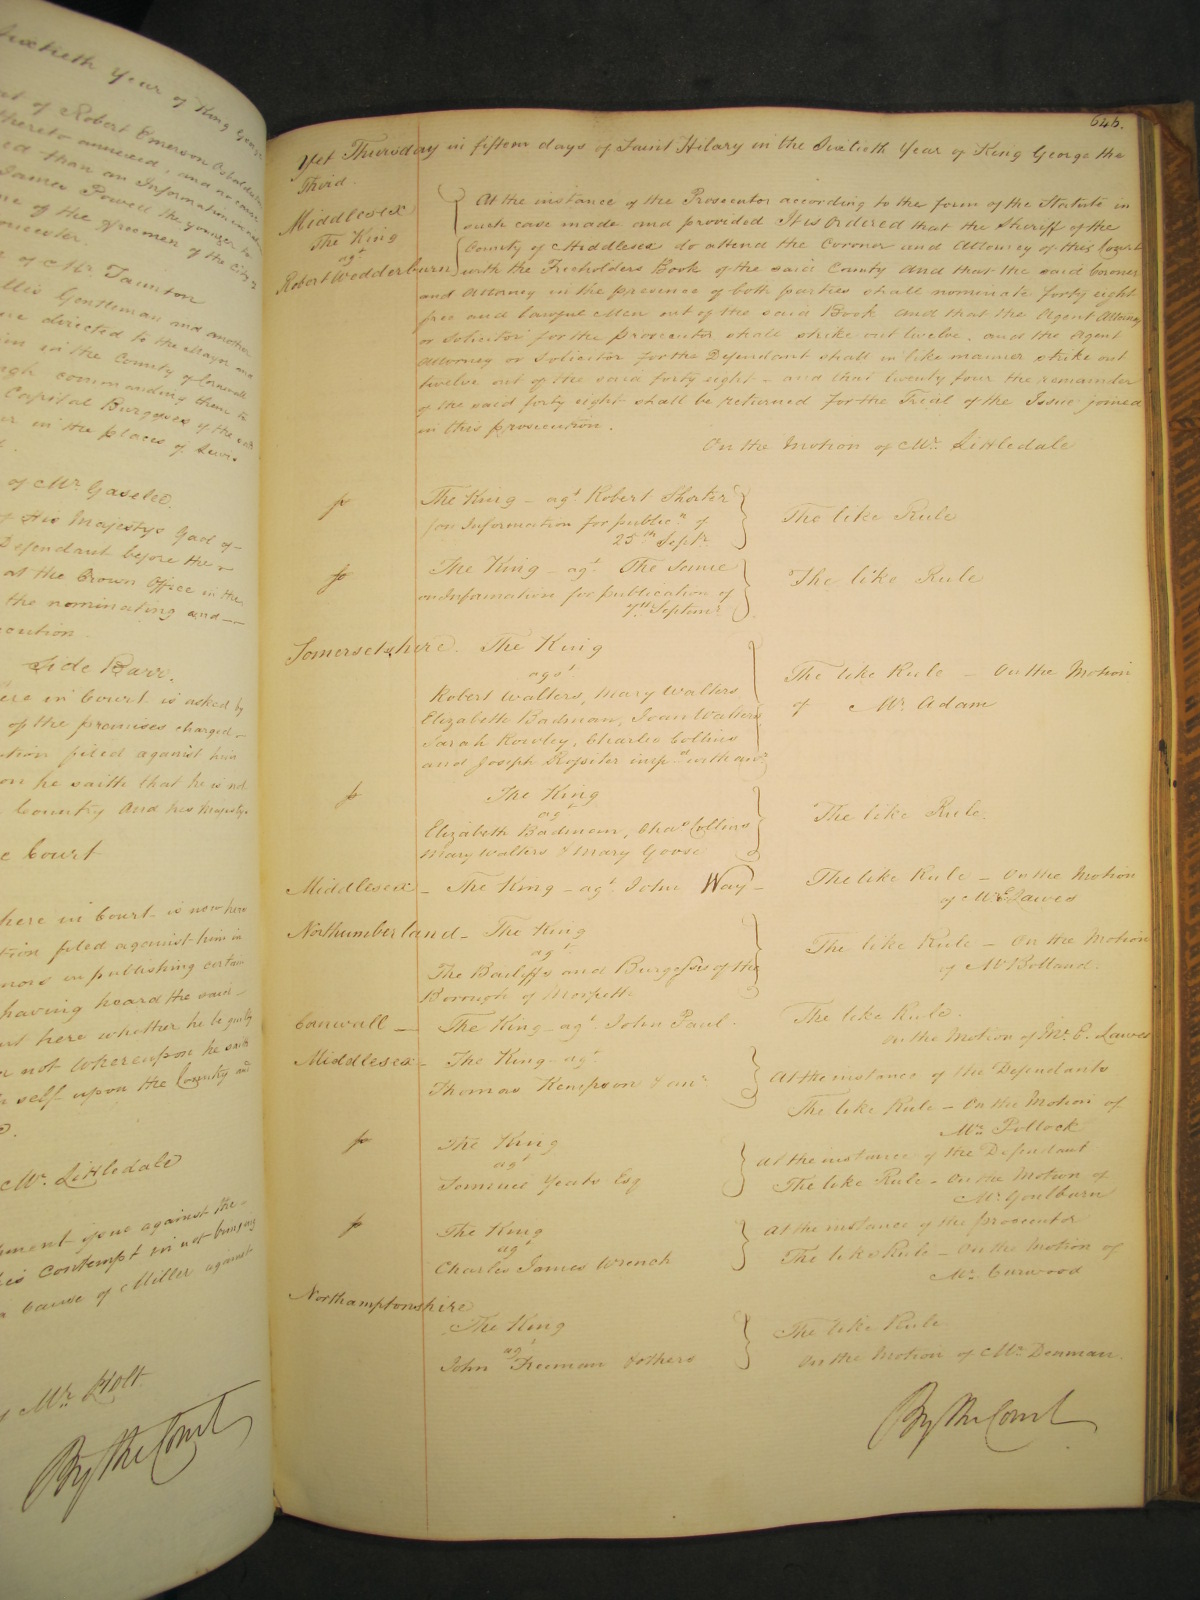 Sixtieth Year of King George
of Robert Emerson
thereto annexed, and no cause
than an Information
James Powell the younger to
one of the freemen of the City
of Mr. Taunton
Gentleman and another
directed to the Mayor and
in the County of Cornwall
commanding them to
Capital Burgesses of the
in the places of
of Mr. Gaselee.
of His Majestys Gaol of
Defendant before the
at the Crown Office in the
the nominating and
Side Barr.
here in Court is asked by
of the premises charged
filed against him
he saith that he is not
Country And his Majestys
Court
here in Court is now here
filed against him in
in publishing certain
having heard the said
here whether he be guilty
not Whereupon he saith
self upon the Country and
Mr. Littledale
issue against the
his contempt in not bringing
Cause of Miller against
Mr. Holt
By the Court
646.
Yet Thursday in fifteen days of Saint Hilary in the Sixtieth Year of King George the
Third.
Middlesex
The King
agt
Robert Wedderburn
At the instance of the Prosecutor according to the form of the Statute in
such case made and provided It is ordered that the Sheriff of the
County of Middlesex do attend the Coroner and Attorney of this Court
with the Freeholders Book of the said County And that the said Coroner
and Attorney in the presence of both parties shall nominate forty eight
free and lawful Men out of the said Book And that the Agent Attorney
or Solicitor for the Prosecutor shall strike out twelve, and the Agent
Attorney or Solicitor for the Defendant shall in like manner strike out
twelve out of the said forty eight - and that twenty four the remainder
of the said forty eight shall be returned for the Trial of the Issue joined
in this prosecution.
On the Motion of Mr. Littledale
The King - agt Robert Shorter
on Information for public.n of
25th Septr.
The like Rule
The King - agt. The Same
on Information for publication of
7th Septemr.
The like Rule
Somersetshire. The King
agst
Robert Walters, Mary Walters
Elizabeth Badman, Joan Walters
Sarah Rowley, Charles Collins
and Joseph Rossiter imp.d with anr.
The like Rule - On the Motion
of Mr. Adam
The King
agt
Elizabeth Badman, Chas. Collins
Mary Walters & Mary Goose
The like Rule.
Middlesex - The King - agt. John Way -
The like Rule - On the Motion
of Mr. E. Lawes
Northumberland - The King
agt
The Bailiffs and Burgesses of the
Borough of Morpeth
The like Rule - On the Motion
of Mr Bolland.
Cornwall - The King - agt. John Paul.
The like Rule.
On the Motion of Mr. E. Lawes
Middlesex - The King - agt.
Thomas Kempson & anr.
At the instance of the Defendants
The like Rule - On the Motion of
Mr. Pollock
The King
agt
Samuel Yeats Esq
At the instance of the Defendant
The like Rule - On the Motion of
Mr. Goulburn
The King
agt
Charles James Wrench
At the instance of the Prosecutor
The like Rule - On the Motion of
Mr. Curwood
Northamptonshire
The King
agt
John Freeman & others
The like Rule
On the Motion of Mr. Denman.
By the Court